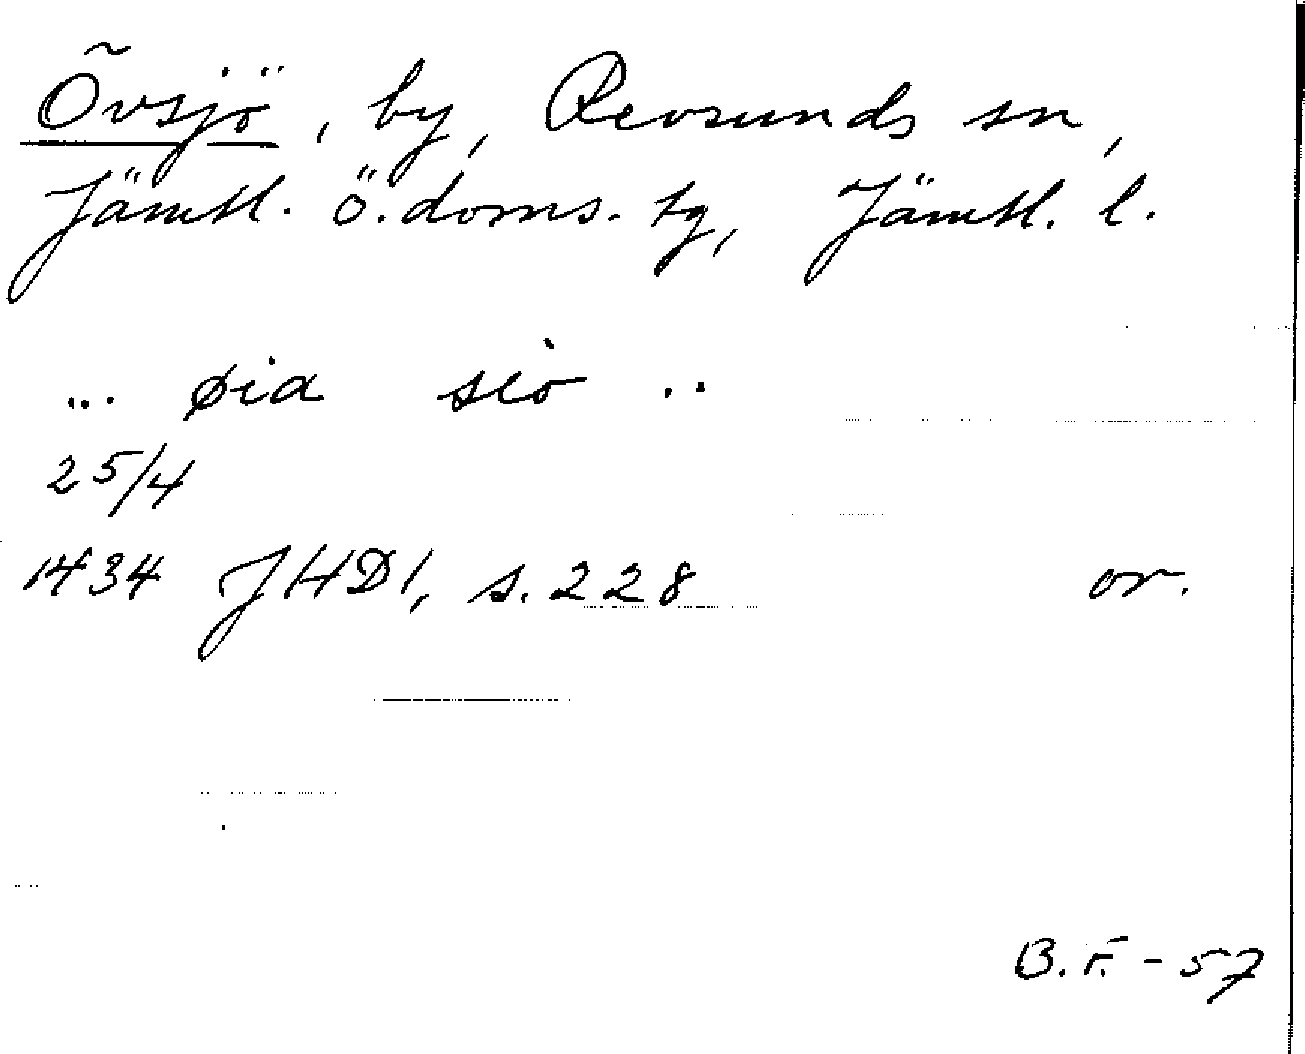 Övsjö, by, Revsunds sn,
Jämtl. ö. doms. tg, Jämtl. l.
... øia siò ..
25/4
1434 JHD1, s. 228 or.
B.F. - 57